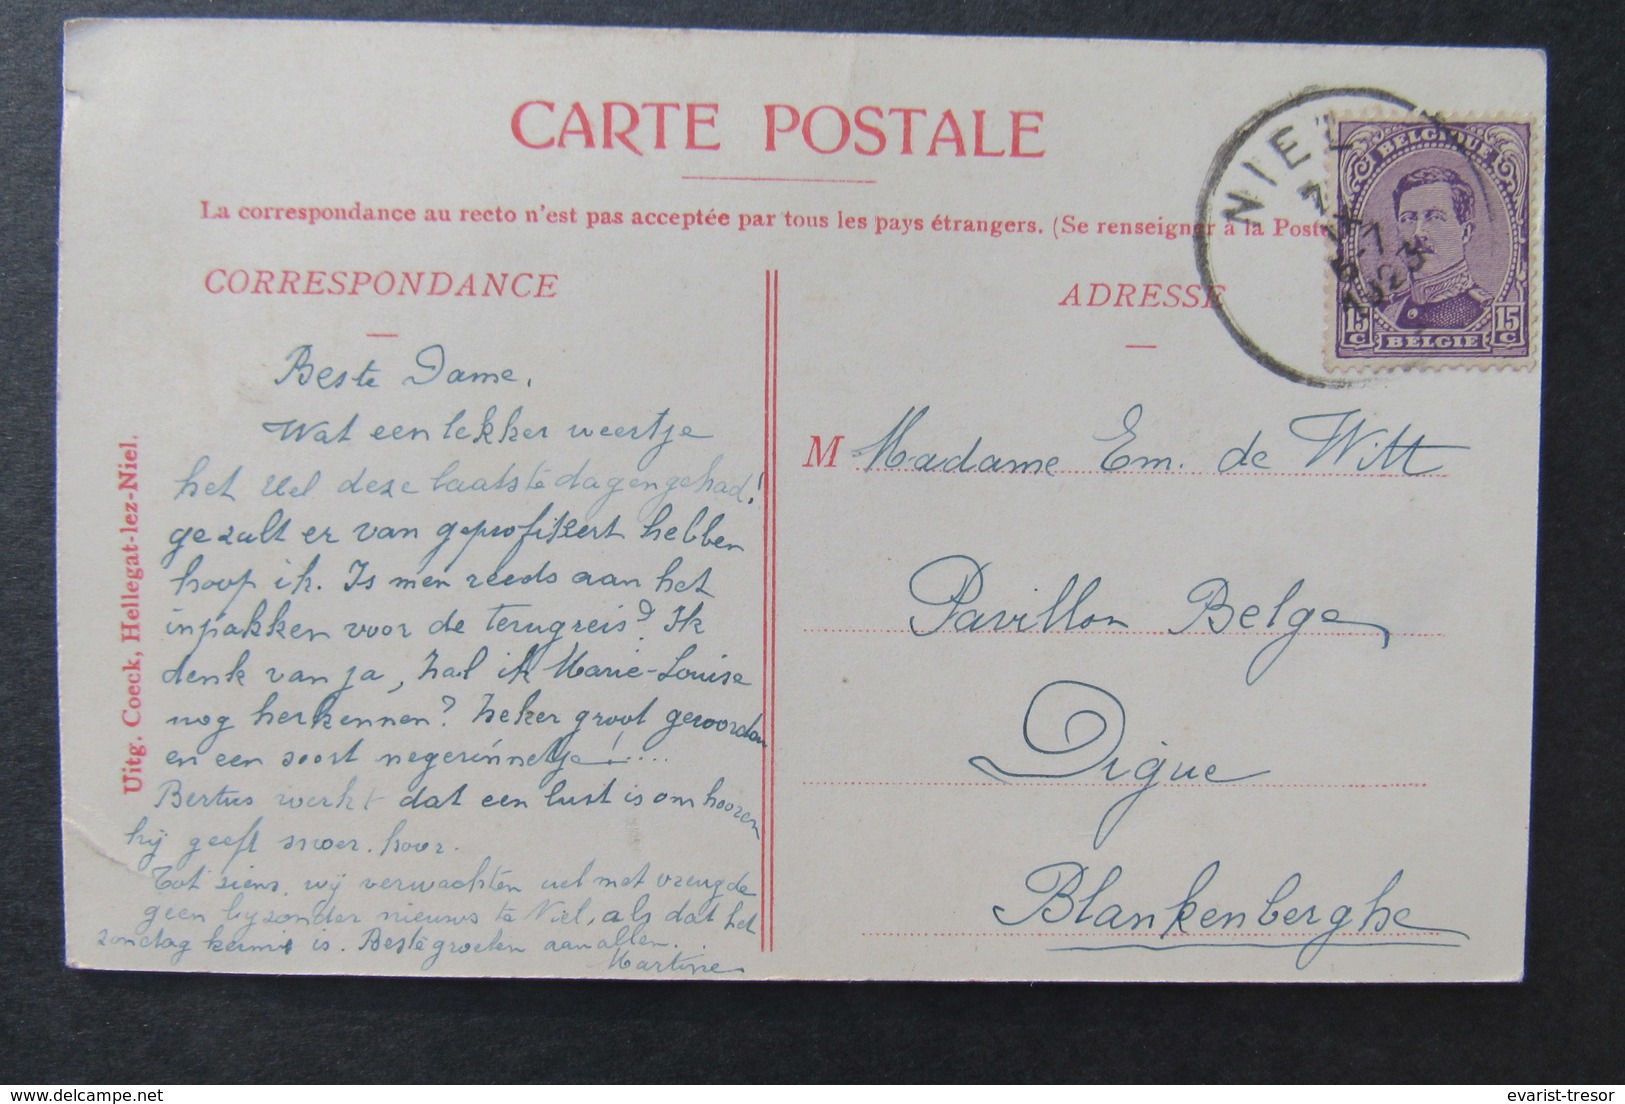 CARTE POSTALE
La correspondance au recto n'est pas acceptée par tous les pays étrangers. (Se renseigner à la Poste
CORRESPONDANCE
Beste Dame,
Wat een lekker weertje
het wel deze laatste dagen gehad!
ge zult er van geprofiteert hebben
hoop ik. Is men reeds aan het
inpakken voor de terugreis? Ik
denk van ja, zal ik Marie-Louise
nog herkennen? Zeker groot geworden
en een soort negerinnetje!....
Bertus werkt dat een lust is om hooren
hij geeft snoer. hoor.
Tot ziens, wij verwachten met vreugde
geen bijzonder nieuws te Niel, als dat het
zondag kermis is. Beste groeten aan allen.
Martine
Uitg. Coeck, Hellegat-lez-Niel.
ADRESSE
M Madame Em. de Witt
Pavillon Belge
Digue
Blankenberghe
NIEL
1923
BELGIQUE
15 C
15 C
BELGIE
delcampe.net
evarist-tresor